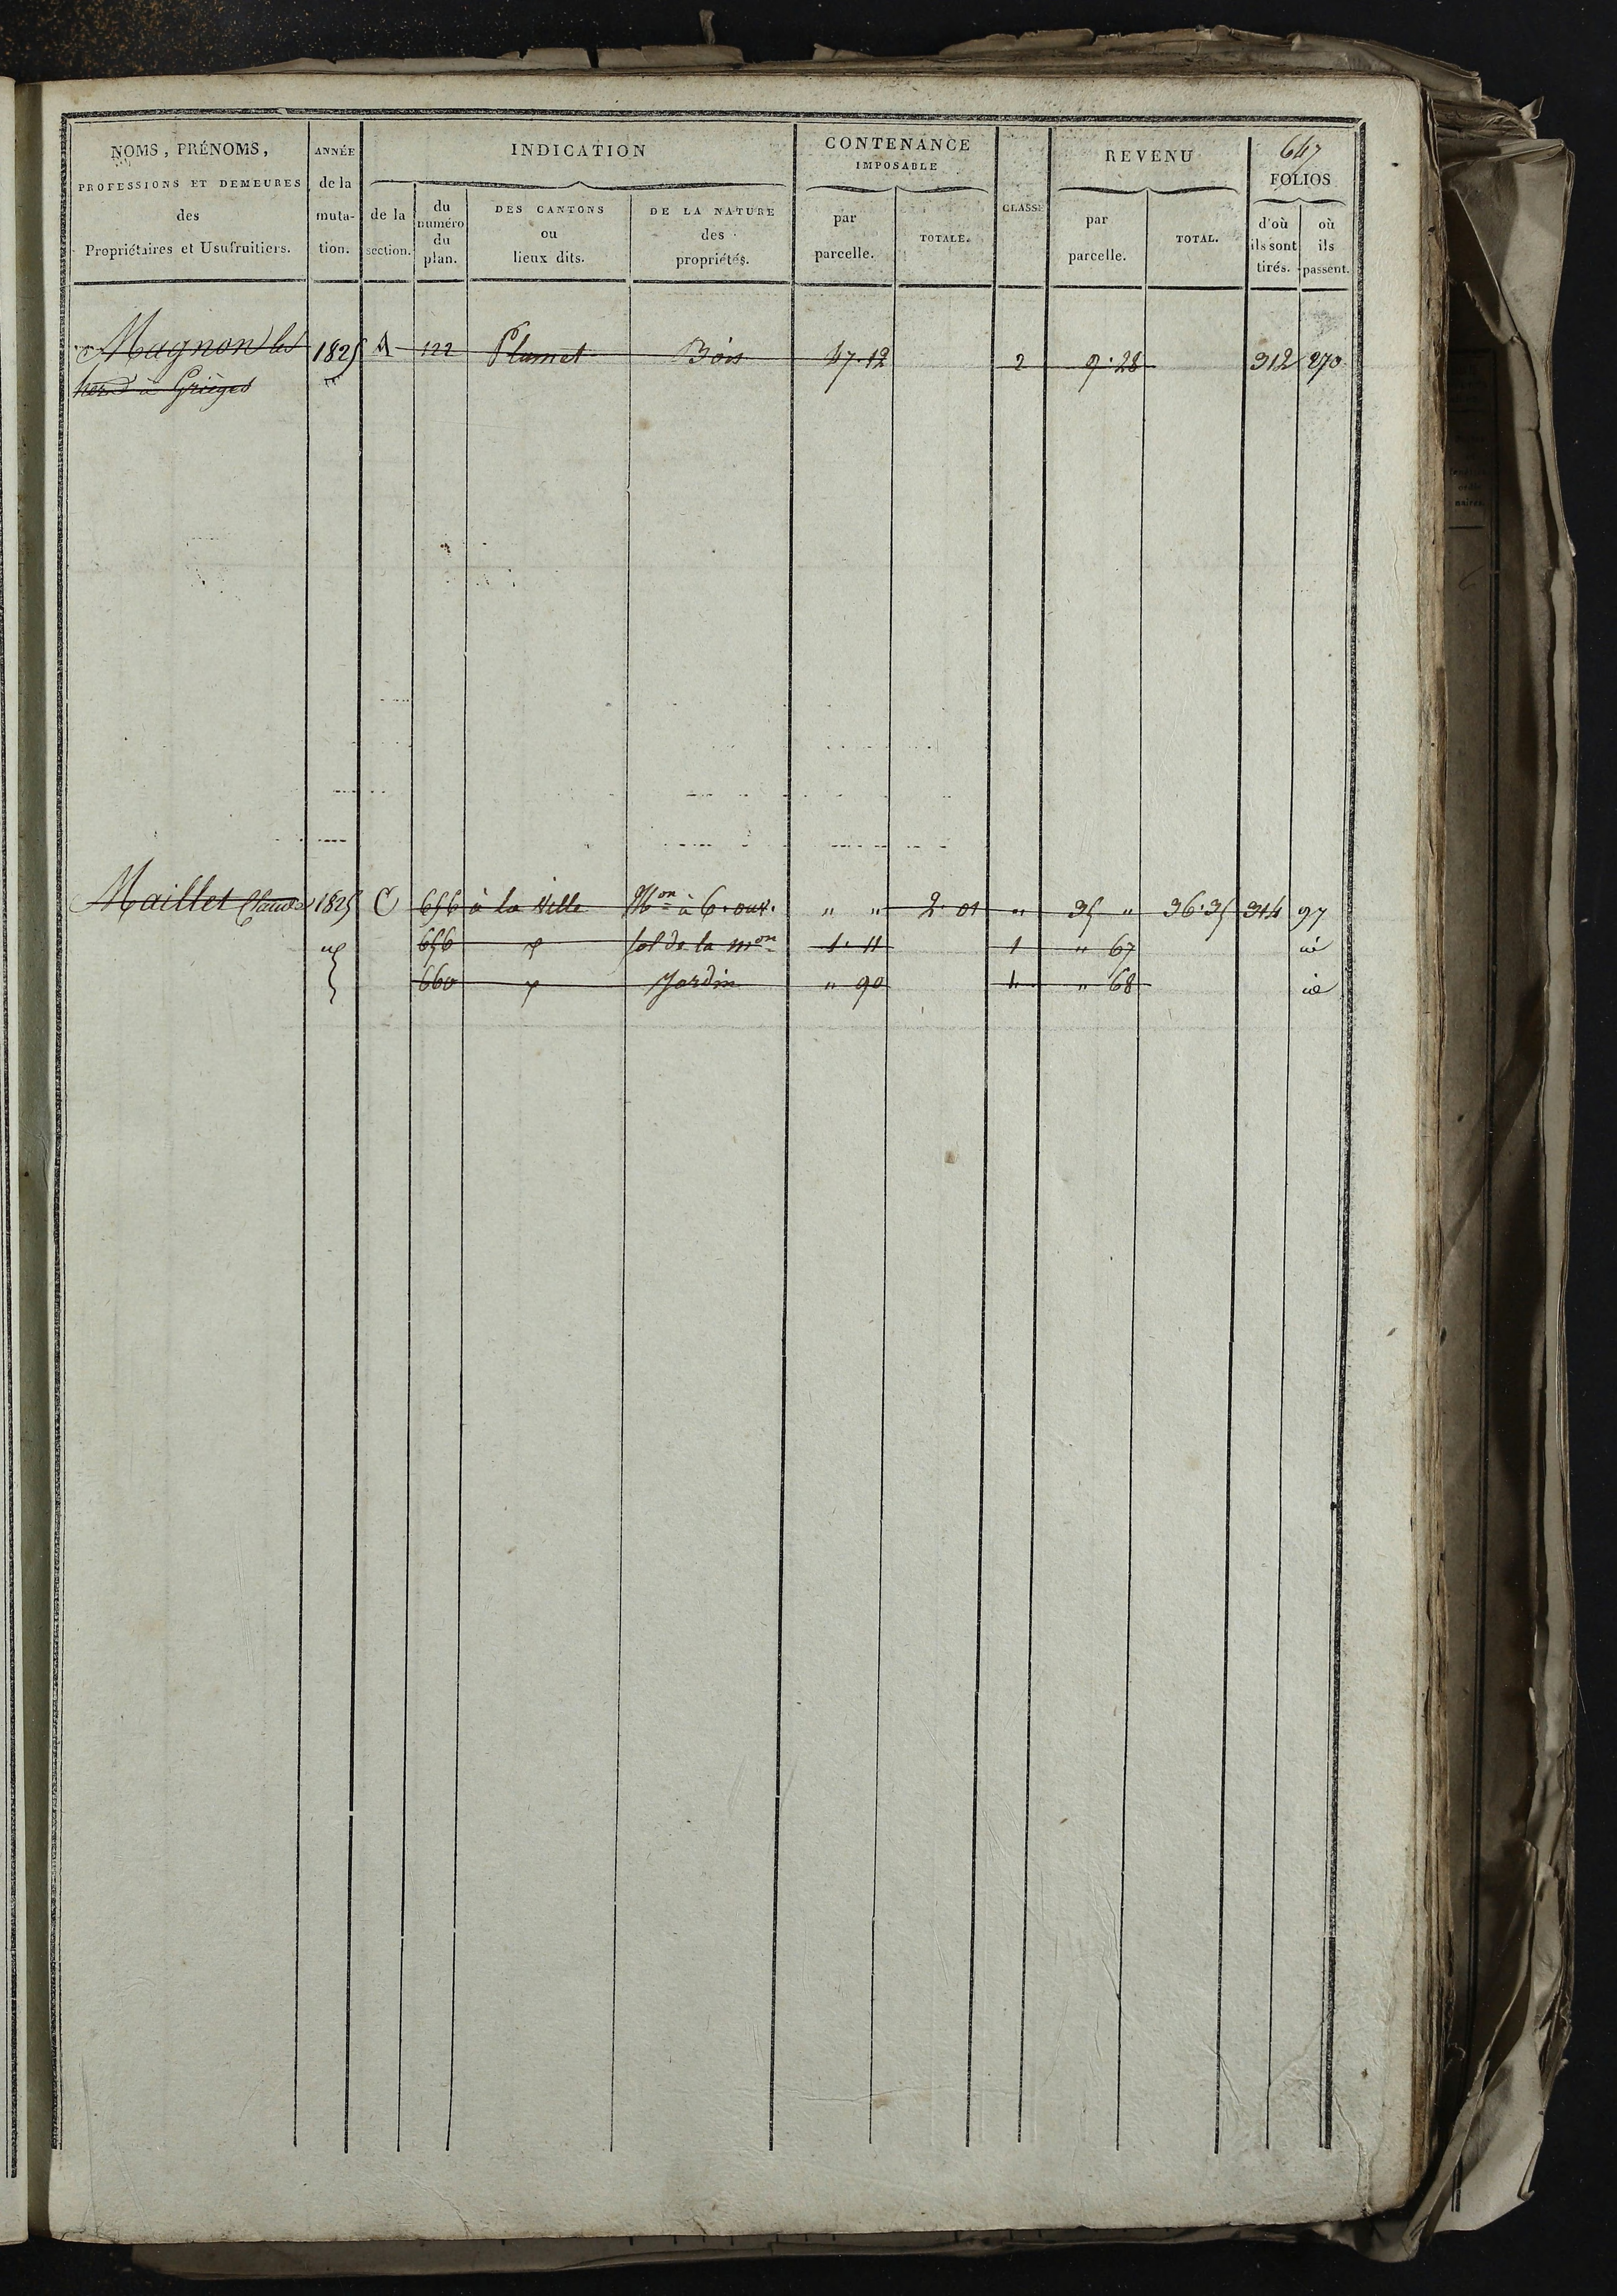 647
NOMS, PRÉNOMS,
PROFESSIONS ET DEMEURES
des
Propriétaires et Usufruitiers.
ANNÉE
de la
muta-
tion.
INDICATION
de la
section.
du
numéro
du
plan.
DES CANTONS
ou
lieux dits.
DE LA NATURE
des
propriétés.
CONTENANCE
IMPOSABLE
par
parcelle.
TOTALE.
CLASSE
REVENU
par
parcelle.
TOTAL.
FOLIOS
d'où
ils sont
tirés.
où
ils
passent.
Magnon les 1825 A 122 Plumet Bois 47.12 2 9.28 312 270
à Grièges
Maillet Claude 1825 C 656 à la Ville Mon à 6. ouv. " " 2.01 " 35 " 36.35 314 97
656 sol de la mon 1.11 1 " 67 id
660 Jardin " 90 " 68 id